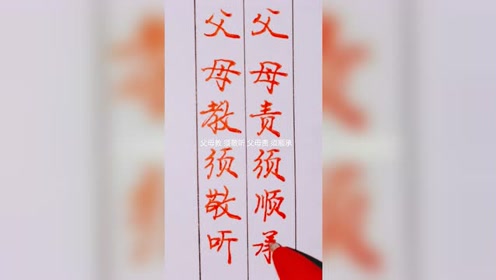 父母教须敬听
父母责须顺承
父母教 须敬听 父母责 须顺承